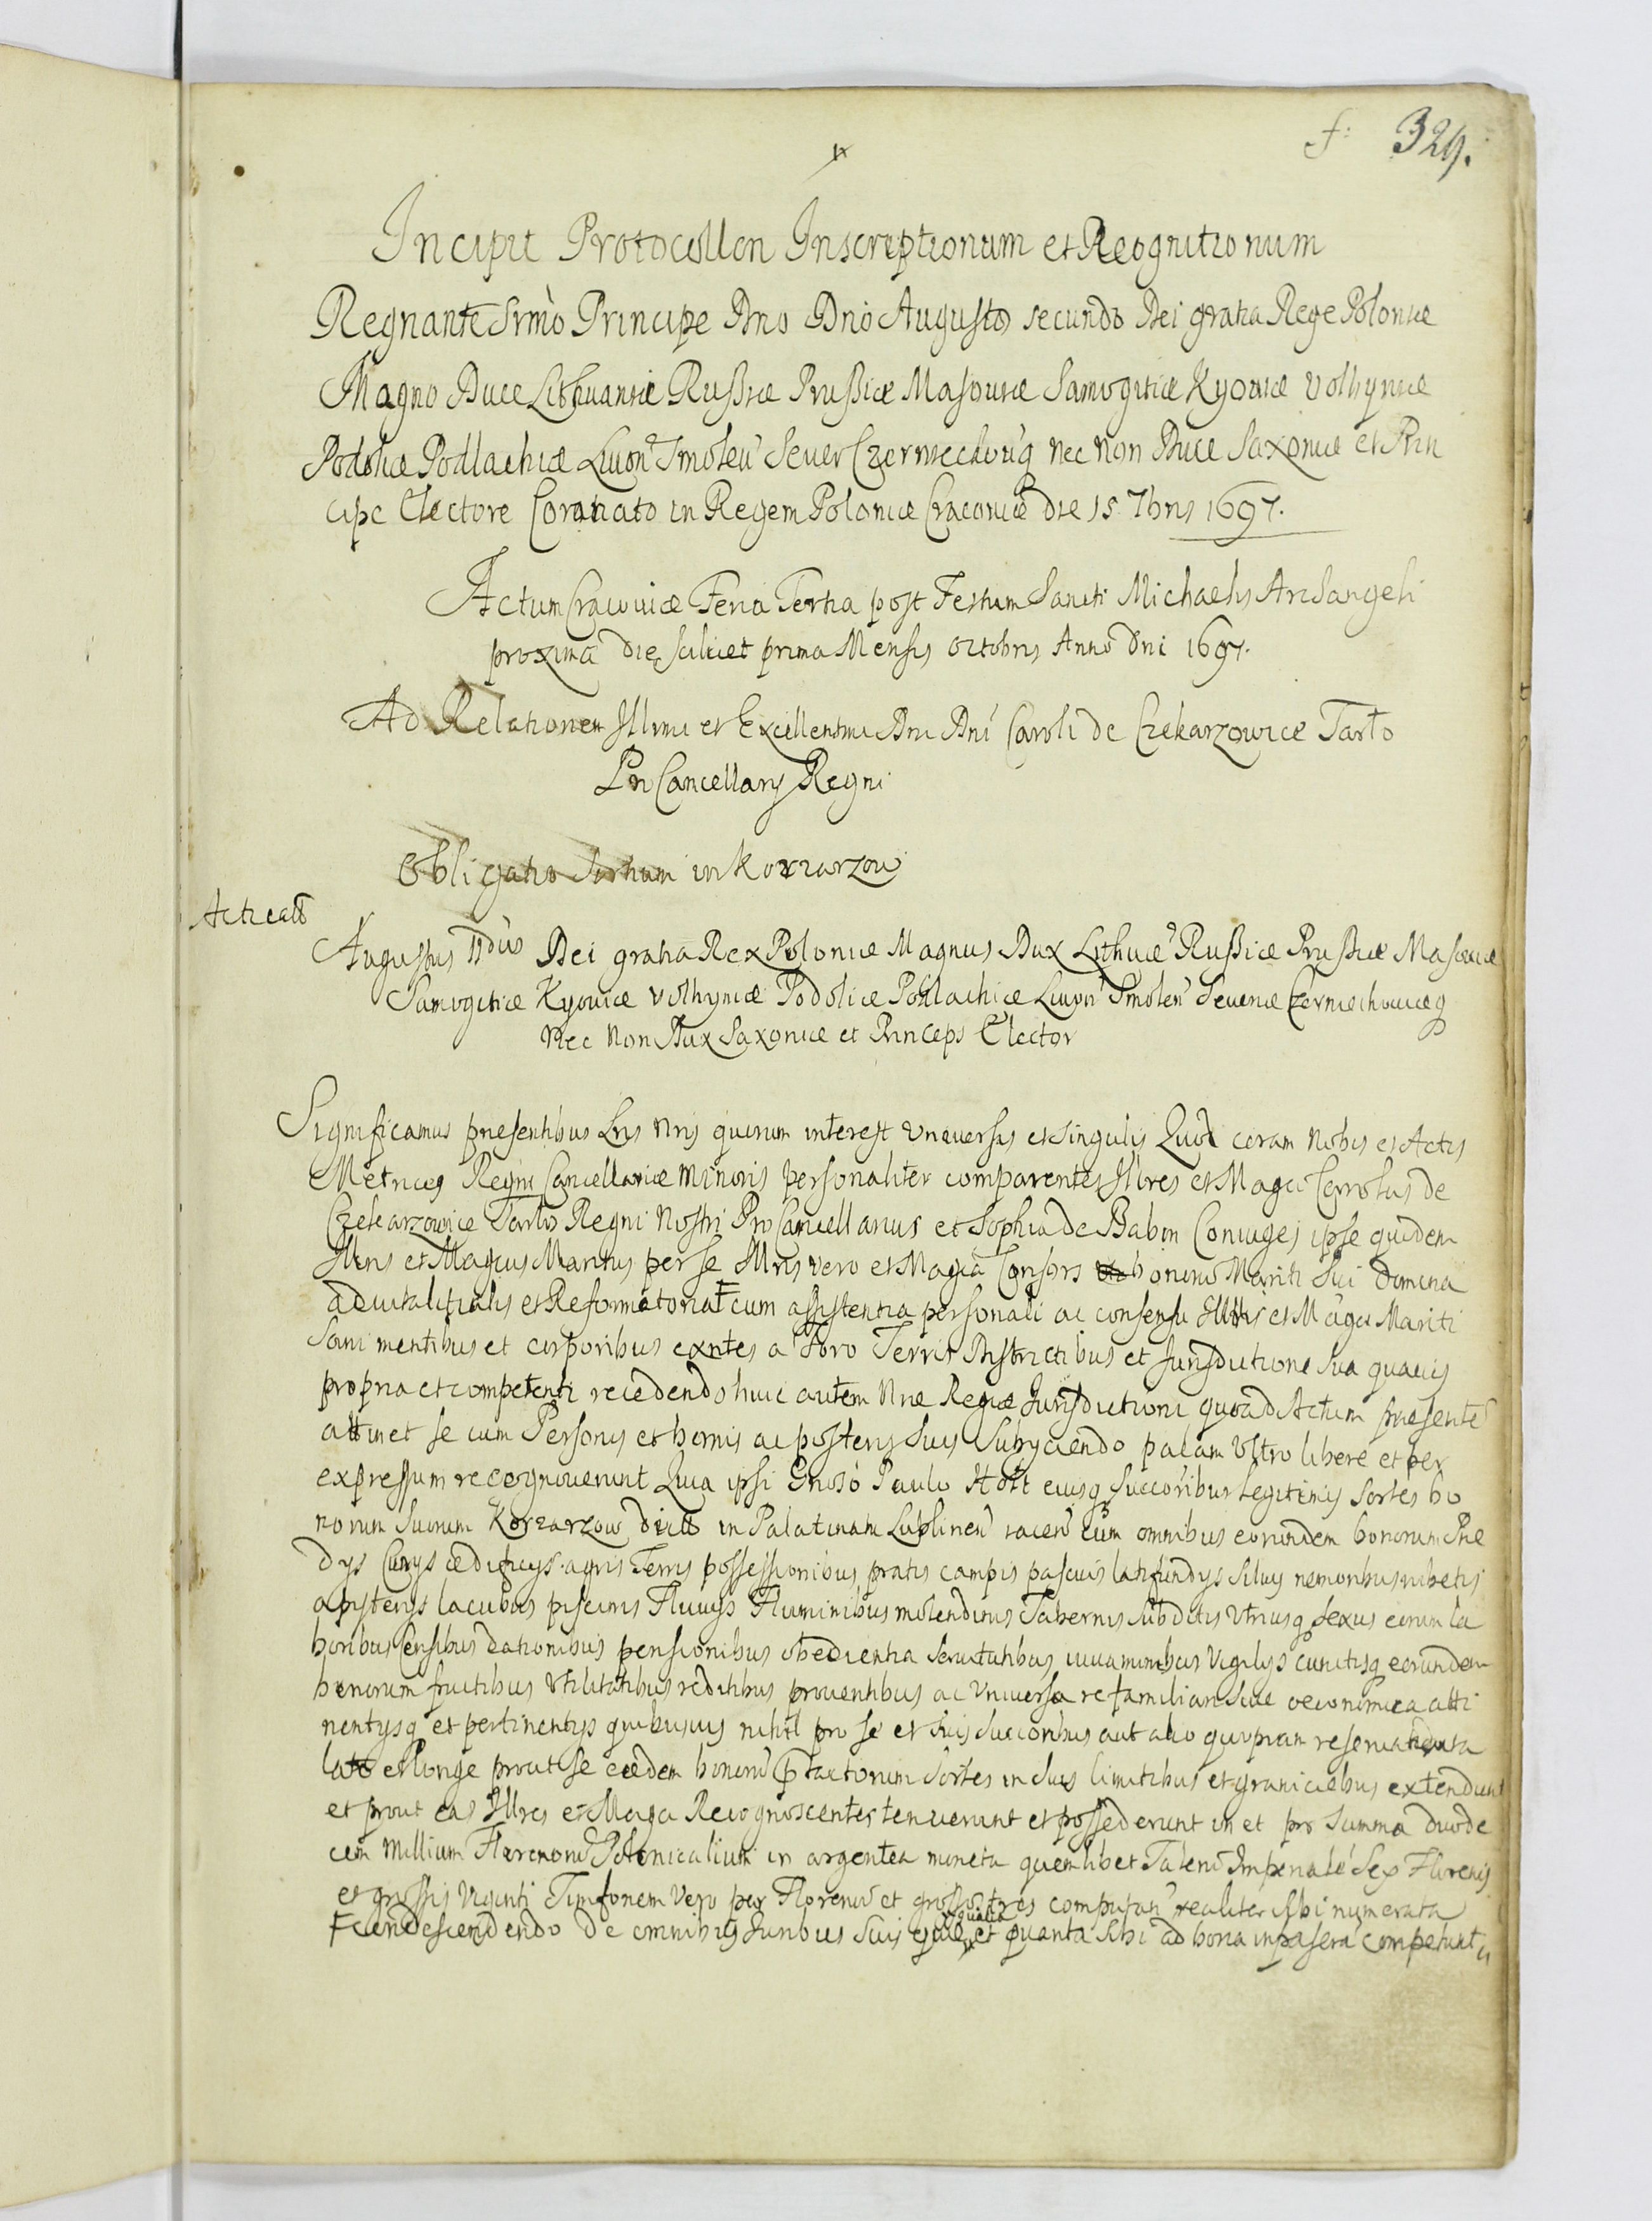 f: 329.
Incipit Protocollon Inscreptionum et Recognitionum
Regnante Srmò Principe Dno Dnò Augusto secundo Dei gratia Rege Poloniæ
Magno Duce Lithuaniæ Russiæ Prussiæ Masouiæ Samogitiæ Kyouiæ Volhyniæ
Podoliæ Podlachiæ Liuon Smolen Seuer Czerniechouiæq nec non Duce Saxoniæ et Prin
cipe Electore Coronato in Regem Poloniæ Cracouiæ die 15 7bris 1697.
Actum Cracouiæ Feria Tertia post Festum Sancti Michaelis Archangeli
proxima die scilicet prima Mensis Octobris Anno Dni 1697.
Ad Relationem Illrmi et Excellentmi Dni Dni Caroli de Czekarzowice Tarło
Pro Cancellarij Regni
Obligatio Sortium in Korzarzow
Acticatt
Augustus IIdus Dei gratia Rex Poloniæ Magnus Dux Lithuæ Russiæ Prussiæ Masouiæ
Samogitiæ Kyouiæ Volhyniæ Podoliæ Podlachiæ Liuon Smolen Seueriæ Czerniechouiæq
Nec Non Dux Saxoniæ et Princeps Elector
Significamus præsentibus Lris Nris quorum interest Vniuersis et singulis Quod coram Nobis et Actis
Metrices Regni Cancellariæ Minoris personaliter comparentes Illres et Magci Carolus de
Czekarzowice Tarło Regni Nostri Pro Cancellarius et Sophia de Babin Coniuges ipse quidem
Illris et Magcus Maritus per se Illris vero et Magca Consors bonorum Mariti Sui domina
aduitalitialis et Reformatoria F cum assistentia personali ac consensu Illtris et Magci Mariti
Sani mentibus et corporibus exntes a Foro Terris Districtibus et Jurisdictione Sua quauis
propria et competenti recedendo huic autem Nræ Regiæ Jurisdictioni quoad Actum præsente
attinet se cum Personis et bonis ac posteris suis Subyciendo palam Vltro libere et per
expressum recognouerunt Quia ipsi Gnoso Paulo Hołt eiusq Succoribus Legitimis Sortes bo
norum Suorum Korzarzow dict in Palatinatu Lublinen iacen cum omnibus eorundem bonorum Præ
dys Curys ædificys agris Terris possessionibus pratis campis pascuis latifundys siluis nemoribus rubetis
apisterys lacubus piscinis Fluuys Fluminibus molendinis Tabernis subditis Vtriusq sexus eorum la
boribus Censibus dationibus pensionibus obedientia seruitutibus iuuaminibus Vigilys cunctisq eorundem
bonorum fructibus Vtilitatibus reditibus prouentibus ac Vniuersa re familiari siue oeconomica atti
nentysq et pertinentys quibusuis nihil pro se et suis succoribus aut alio quopiam reseruando ita
late et longe prout se eædem bonorum Sortes in suis limitibus et graniciebus extendunt
et prout eas Illres et Magci Recognoscentes tenuerunt et possederunt in et pro Summa duode
cim Millium Florenorum Polonicalium in argentea moneta quemlibet Talerum Imperiale Sex Florenis
et grossis Viginti Timfonem Vero per Florenum et grossos tres computan realiter sibi numerata
F condescendendo de omnibus Juribus suis quæ et qualia et quanta sibi ad bona infrascra competunt